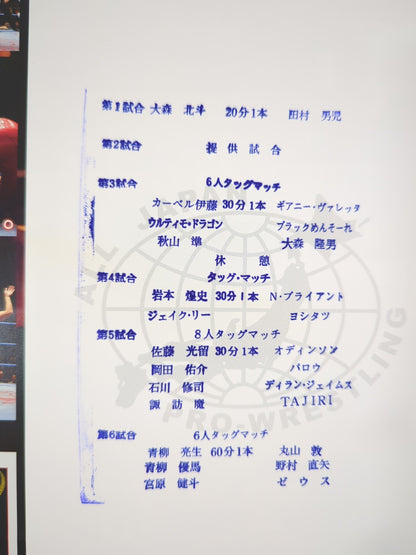 第1試合 大森 北斗 20分1本 田村 男児
第2試合 提供試合
第3試合 6人タッグマッチ
カーベル伊藤 30分1本 ギアニー・ヴァレッタ
ウルティモ・ドラゴン ブラックめんそーれ
秋山 準 大森 隆男
休 憩
第4試合 タッグ・マッチ
岩本 煌史 30分1本 N・ブライアント
ジェイク・リー ヨシタツ
第5試合 8人タッグマッチ
佐藤 光留 30分1本 オディンソン
岡田 佑介 パロウ
石川 修司 ディラン・ジェイムス
諏訪 魔 TAJIRI
第6試合 6人タッグマッチ
青柳 亮生 60分1本 丸山 敦
青柳 優馬 野村 直矢
宮原 健斗 ゼウス
ALL JAPAN
PRO-WRESTLING